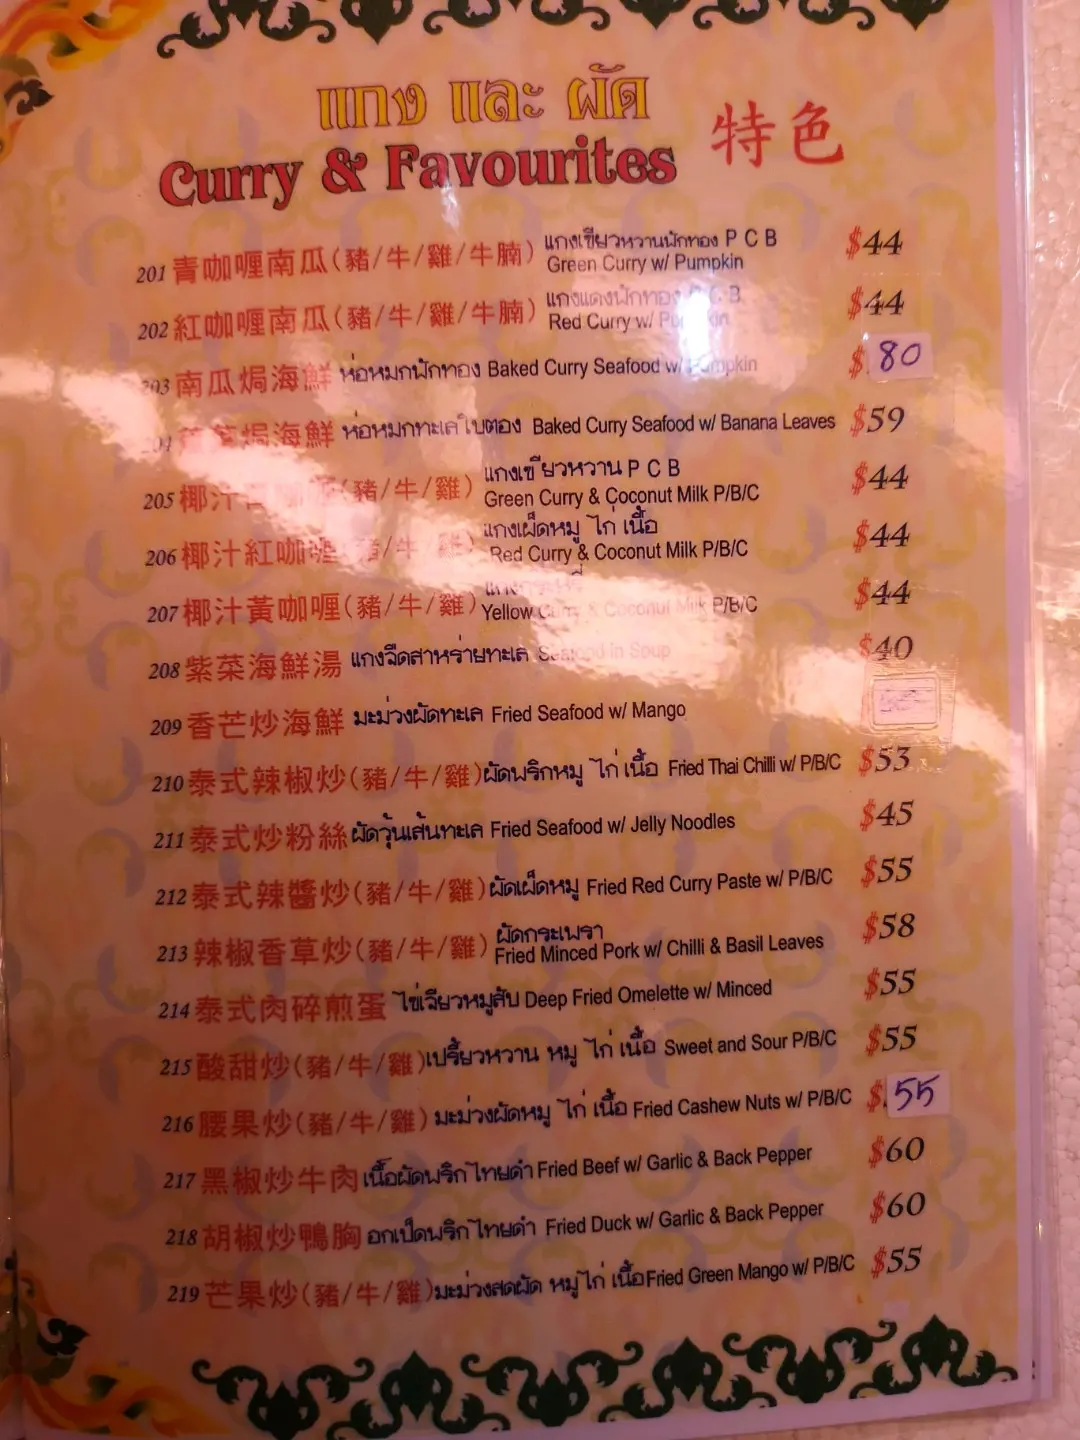 แกง และ ผัด
Curry & Favourites 特色
201 青咖喱南瓜(豬/牛/雞/牛腩) แกงเขียวหวานฟักทอง P C B $44
Green Curry w/ Pumpkin
202 紅咖喱南瓜(豬/牛/雞/牛腩) แกงแดงฟักทอง P C B $44
Red Curry w/ Pumpkin
203 南瓜焗海鮮 ห่อหมกฟักทอง Baked Curry Seafood w/ Pumpkin $80
焗海鮮 ห่อหมกทะเลใบตอง Baked Curry Seafood w/ Banana Leaves $59
205 椰汁 (豬/牛/雞) แกงเขียวหวาน P C B $44
Green Curry & Coconut Milk P/B/C
206 椰汁紅咖喱(豬/牛/雞) แกงเผ็ดหมู ไก่ เนื้อ $44
Red Curry & Coconut Milk P/B/C
207 椰汁黃咖喱(豬/牛/雞) แกงกระหรี่ $44
Yellow Curry & Coconut Milk P/B/C
208 紫菜海鮮湯 แกงจืดสาหร่ายทะเล Seafood in Soup $40
209 香芒炒海鮮 มะม่วงผัดทะเล Fried Seafood w/ Mango
210 泰式辣椒炒(豬/牛/雞) ผัดพริกหมู ไก่ เนื้อ Fried Thai Chilli w/ P/B/C $53
211 泰式炒粉絲 ผัดวุ้นเส้นทะเล Fried Seafood w/ Jelly Noodles $45
212 泰式辣醬炒(豬/牛/雞) ผัดเผ็ดหมู Fried Red Curry Paste w/ P/B/C $55
213 辣椒香草炒(豬/牛/雞) ผัดกระเพรา $58
Fried Minced Pork w/ Chilli & Basil Leaves
214 泰式肉碎煎蛋 ไข่เจียวหมูสับ Deep Fried Omelette w/ Minced $55
215 酸甜炒(豬/牛/雞) เปรี้ยวหวาน หมู ไก่ เนื้อ Sweet and Sour P/B/C $55
216 腰果炒(豬/牛/雞) มะม่วงผัดหมู ไก่ เนื้อ Fried Cashew Nuts w/ P/B/C $55
217 黑椒炒牛肉 เนื้อผัดพริกไทยดำ Fried Beef w/ Garlic & Back Pepper $60
218 胡椒炒鴨胸 อกเป็ดพริกไทยดำ Fried Duck w/ Garlic & Back Pepper $60
219 芒果炒(豬/牛/雞) มะม่วงสดผัด หมู ไก่ เนื้อ Fried Green Mango w/ P/B/C $55